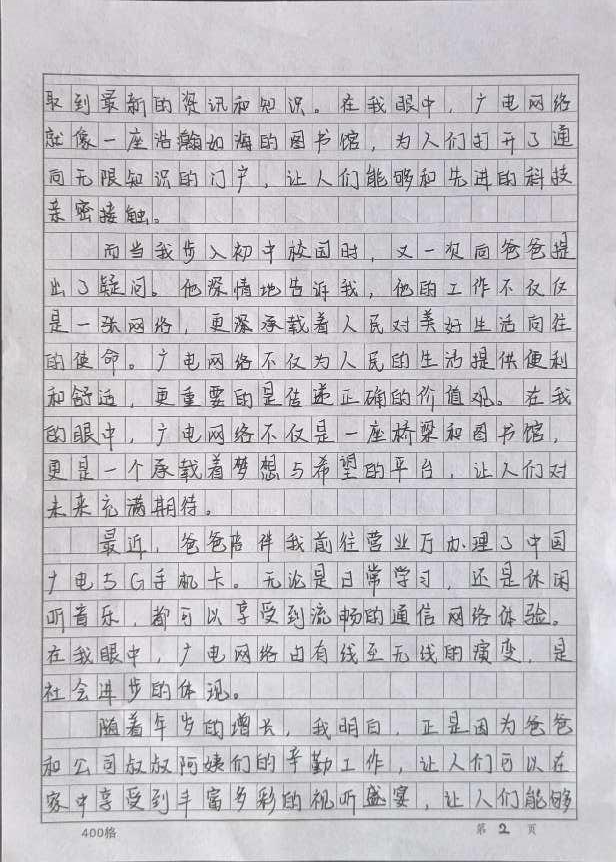 取到最新的资讯和知识。在我眼中，广电网络
就像一座浩瀚如海的图书馆，为人们打开了通
向无限知识的门户，让人们能够和先进的科技
亲密接触。
而当我步入初中校园时，又一次向爸爸提
出了疑问。他深情地告诉我，他的工作不仅仅
是一张网络，更深承载着人民对美好生活向往
的使命。广电网络不仅为人民的生活提供便利
和舒适，更重要的是传递正确的价值观。在我
的眼中，广电网络不仅是一座桥梁和图书馆，
更是一个承载着梦想与希望的平台，让人们对
未来充满期待。
最近，爸爸陪伴我前往营业厅办理了中国
广电5G手机卡。无论是日常学习，还是休闲
听音乐，都可以享受到流畅的通信网络体验。
在我眼中，广电网络由有线至无线的演变，是
社会进步的体现。
随着年岁的增长，我明白，正是因为爸爸
和公司叔叔阿姨们的辛勤工作，让人们可以在
家中享受到丰富多彩的视听盛宴，让人们能够
400格
第2页